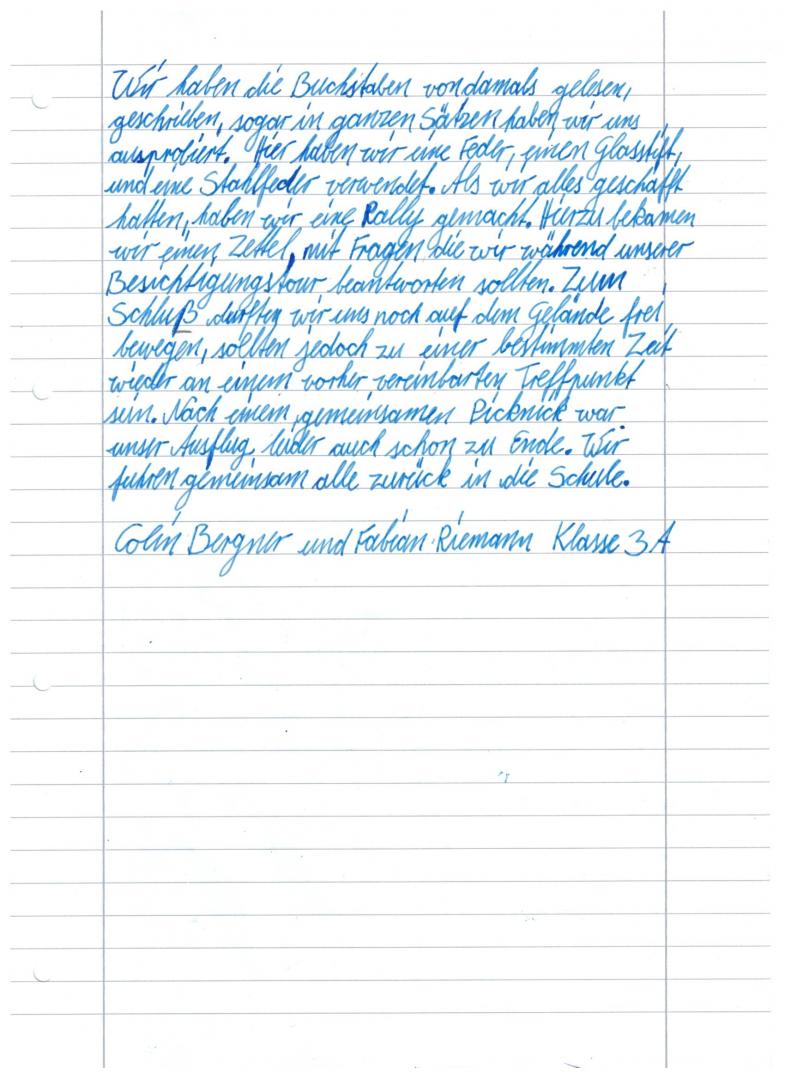 Wir haben die Buchstaben von damals gelesen,
geschrieben, sogar in ganzen Sätzen haben wir uns
ausprobiert. Hier haben wir eine Feder, einen Glasstift,
und eine Stahlfeder verwendet. Als wir alles geschafft
hatten, haben wir eine Rally gemacht. Hierzu bekamen
wir einen Zettel, mit Fragen die wir während unserer
Besichtigungstour beantworten sollten. Zum
Schluß durften wir uns noch auf dem Gelände frei
bewegen, sollten jedoch zu einer bestimmten Zeit
wieder an einem vorher vereinbarten Treffpunkt
sein. Nach einem gemeinsamen Picknick war
unser Ausflug leider auch schon zu Ende. Wir
fuhren gemeinsam alle zurück in die Schule.
Colin Bergner und Fabian Riemann Klasse 3A